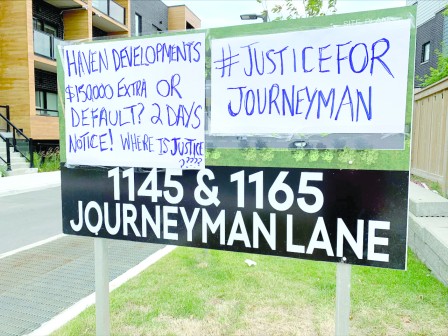 HAVEN DEVELOPMENTS
$150,000 EXTRA OR
DEFAULT? 2 DAYS
NOTICE! WHERE IS JUSTICE
????
#JUSTICEFOR
JOURNEYMAN
1145 & 1165
JOURNEYMAN LANE